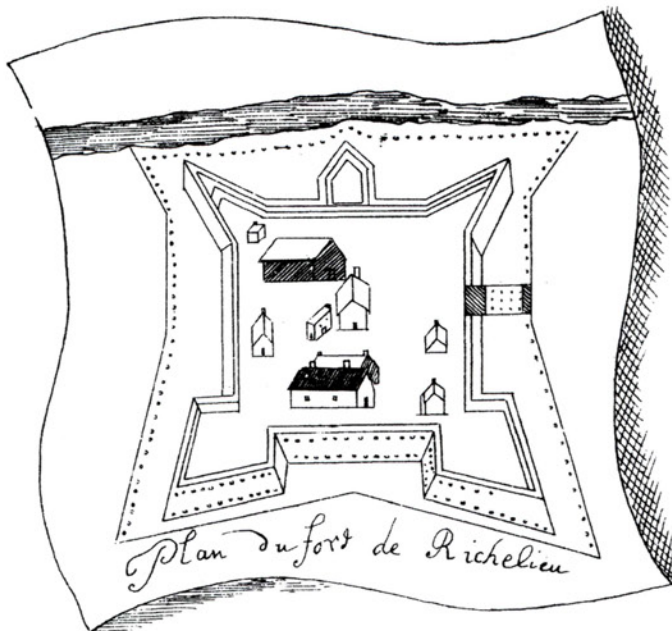 Plan du fort de Richelieu